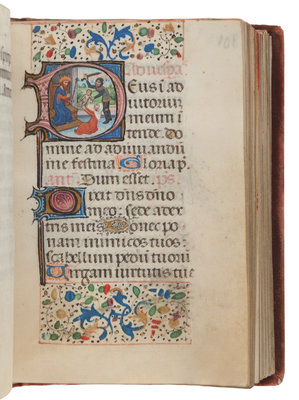 Ad vesp̄a
Deus i ad
iutorium
meum i
tende. do
mine ad adiuuandū
me festina Gloria p̄.
ant. Dum esset. ps.
Dixit dn̄s dn̄o
meo: sede a dex
tris meis Donec po
nam inimicos tuos:
scabellum pedū tuorū
Uirgam uirtutis tue